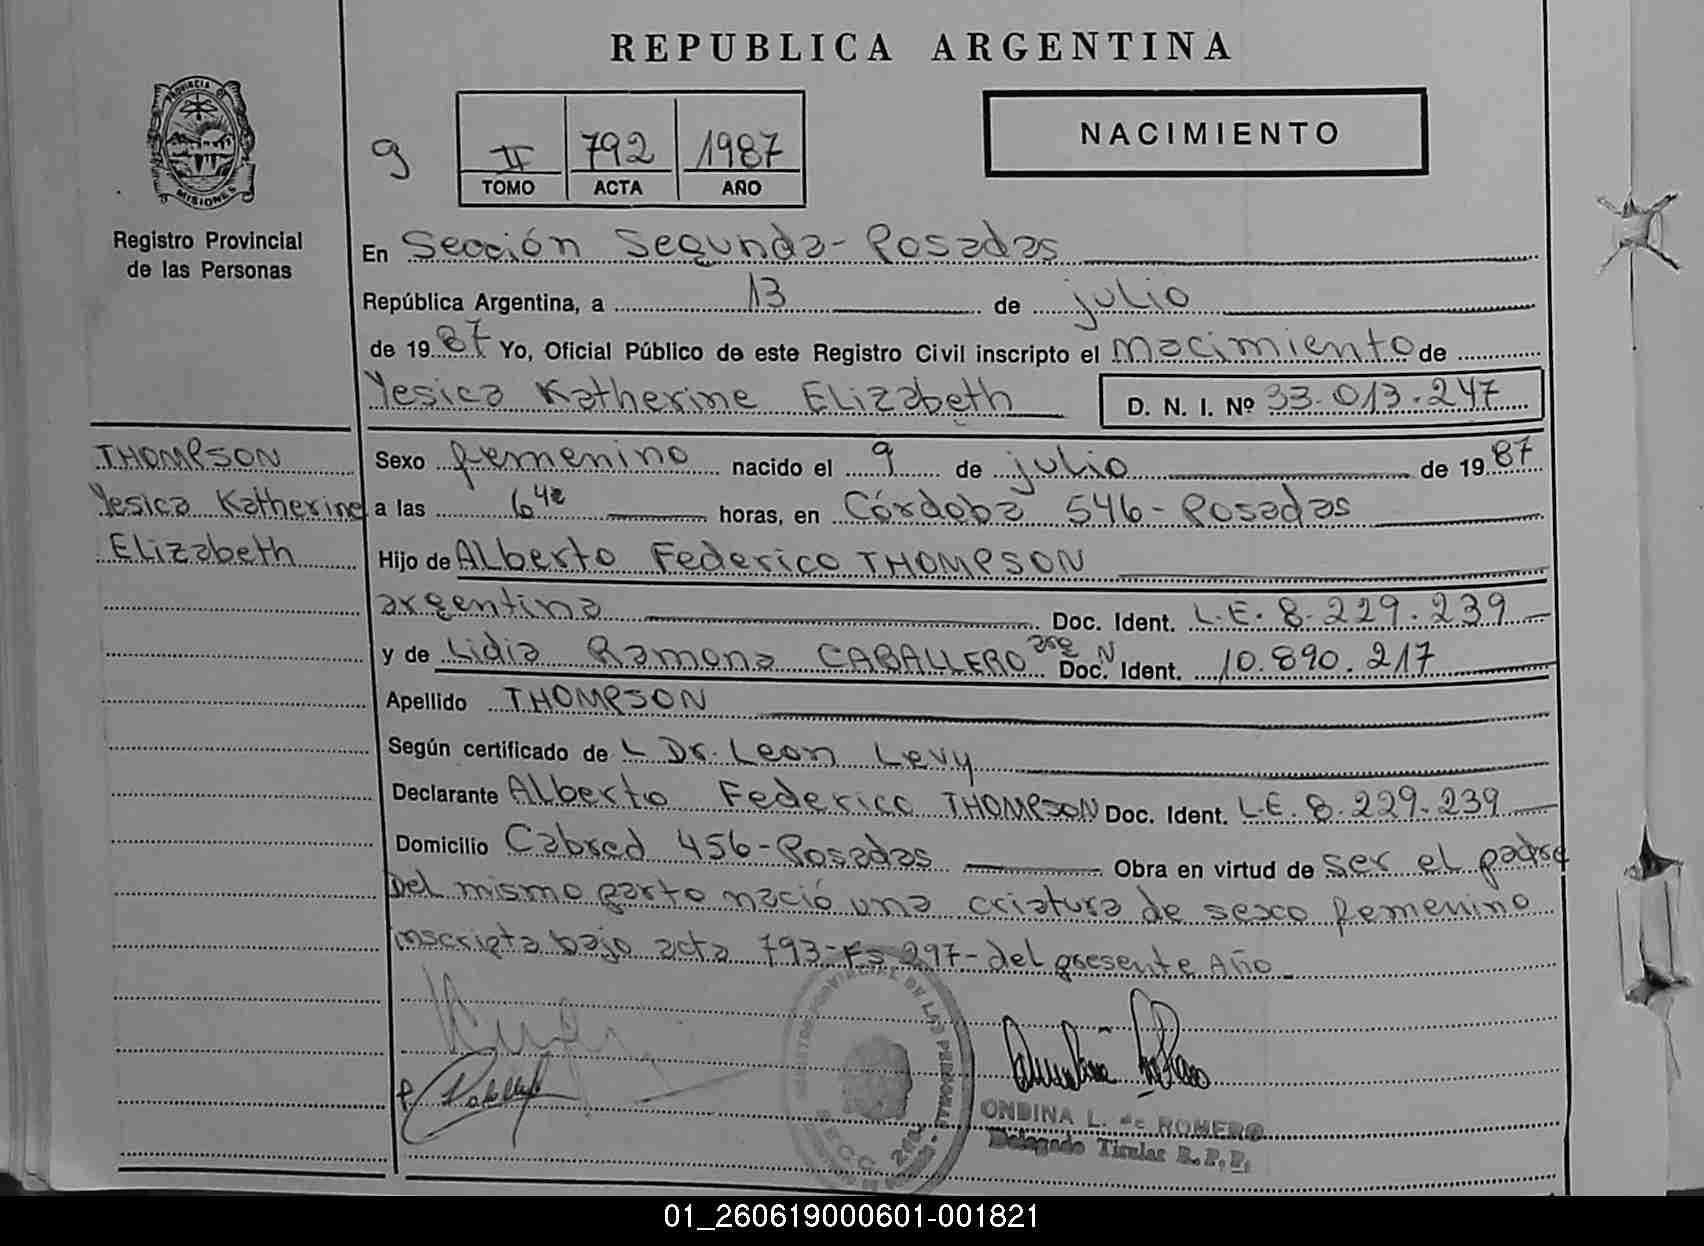 REPUBLICA ARGENTINA
PROVINCIA DE
MISIONES
Registro Provincial
de las Personas
9
II 792 1987
TOMO ACTA AÑO
NACIMIENTO
En Sección Segunda - Posadas
República Argentina, a 13 de julio
de 1987 Yo, Oficial Público de este Registro Civil inscripto el nacimiento de
Yesica Katherine Elizabeth D. N. I. Nº 33.013.247
THOMPSON
Yesica Katherine
Elizabeth
Sexo femenino nacido el 9 de julio de 1987
a las 6 horas, en Córdoba 546 - Posadas
Hijo de Alberto Federico THOMPSON
argentina Doc. Ident. L.E. 8.229.239
y de Lidia Ramona CABALLERO arg N Doc. Ident. 10.890.217
Apellido THOMPSON
Según certificado de L Dr. Leon Levy
Declarante Alberto Federico THOMPSON Doc. Ident. L.E. 8.229.239
Domicilio Cabred 456 - Posadas Obra en virtud de ser el padre
Del mismo parto nació una criatura de sexo femenino
inscripta bajo acta 793 - Fs 297 - del presente Año
DE LAS PERSONAS
SECC. 2da
ONDINA L. de ROMERO
Delegado Titular R. P. P.
01_260619000601-001821